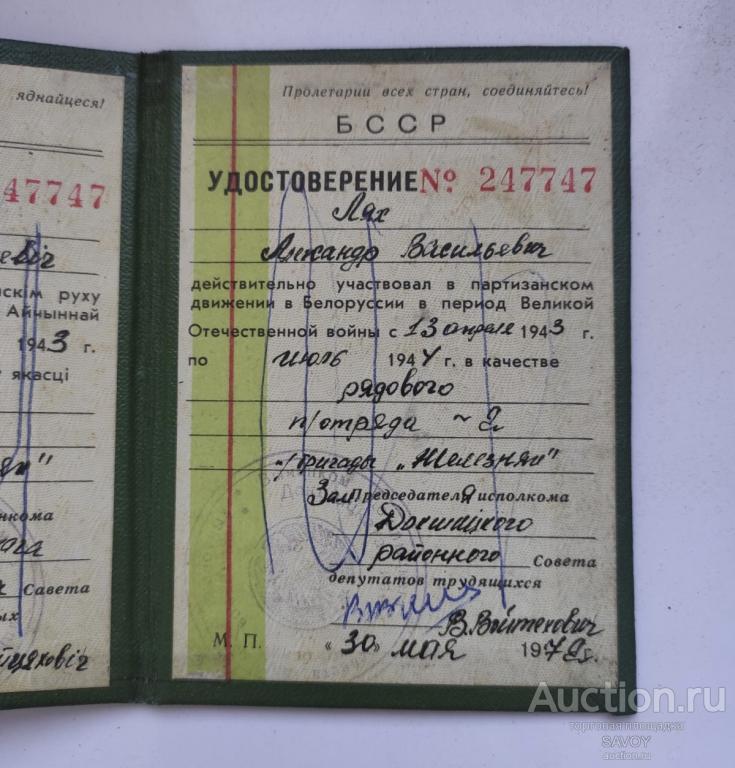 яднайцеся!
47747
евіч
скім руху
Айчыннай
1943 г.
якасці
нкома
Савета
ых
Пролетарии всех стран, соединяйтесь!
БССР
УДОСТОВЕРЕНИЕ № 247747
Лях
Александр Васильевич
действительно участвовал в партизанском
движении в Белоруссии в период Великой
Отечественной войны с 13 апреля 1943 г.
по июль 1944 г. в качестве
рядового
п/отряда ~ 2
бригады „Железняк"
Зам Председателя исполкома
Докшицкого
районного Совета
депутатов трудящихся
В. Войтехович
М. П. «30» мая 197 г.
Auction.ru
торговая площадка
SAVOY
auction.ru